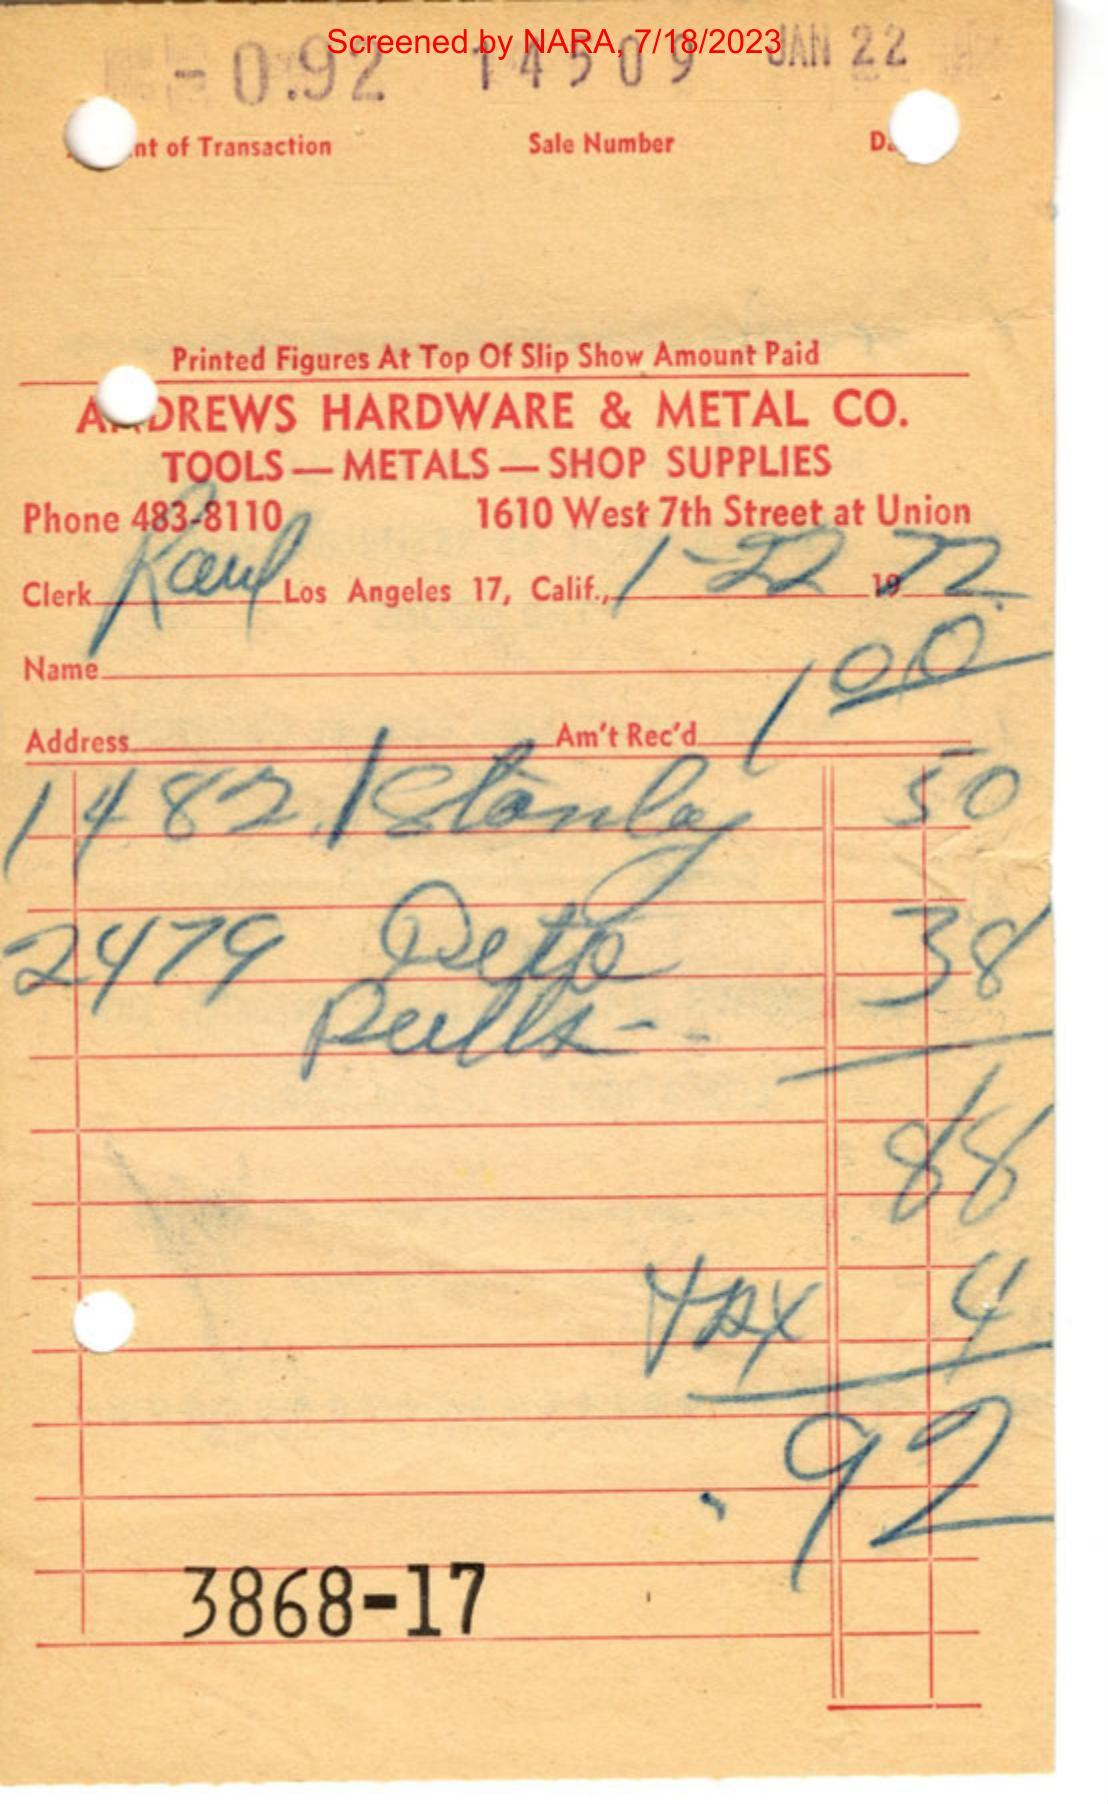 Screened by NARA, 7/18/2023
-0.92 14509 JAN 22
nt of Transaction Sale Number Da
Printed Figures At Top Of Slip Show Amount Paid
A DREWS HARDWARE & METAL CO.
TOOLS — METALS — SHOP SUPPLIES
Phone 483-8110 1610 West 7th Street at Union
Clerk Los Angeles 17, Calif., 1-22 19 72
Name
Address Am't Rec'd 1 00
1482 Stanley 50
2479 38
Pulls--
88
TAX 4
.92
3868-17